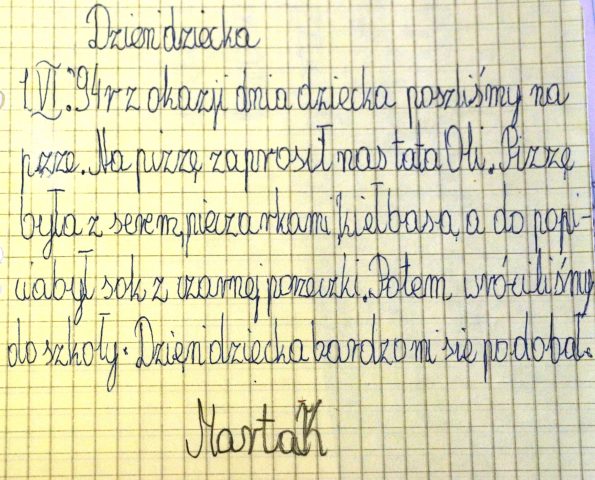 Dzień dziecka
1 VI.94r z okazji dnia dziecka poszliśmy na
pizze. Na pizzę zaprosił nas tata Oli. Pizzę
była z serem, pieczarkami, kiełbasą, a do popi-
cia był sok z czarnej porzeczki. Potem wróciliśmy
do szkoły. Dzień dziecka bardzo mi się podobał.
Marta K